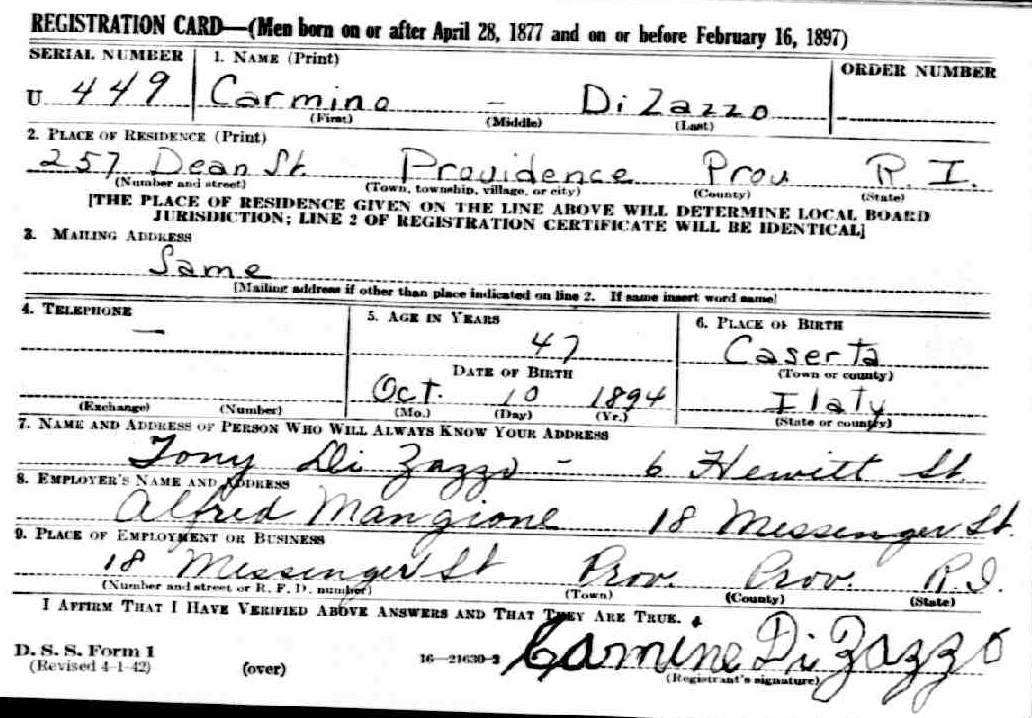 REGISTRATION CARD—(Men born on or after April 28, 1877 and on or before February 16, 1897)
SERIAL NUMBER 1. NAME (Print) ORDER NUMBER
U 449 Carmino – Di Zazzo
(First) (Middle) (Last)
2. PLACE OF RESIDENCE (Print)
257 Dean St. Providence Prov R. I.
(Number and street) (Town, township, village, or city) (County) (State)
[THE PLACE OF RESIDENCE GIVEN ON THE LINE ABOVE WILL DETERMINE LOCAL BOARD
JURISDICTION; LINE 2 OF REGISTRATION CERTIFICATE WILL BE IDENTICAL]
3. MAILING ADDRESS
Same
[Mailing address if other than place indicated on line 2. If same insert word same]
4. TELEPHONE 5. AGE IN YEARS 6. PLACE OF BIRTH
— 47 Caserta
DATE OF BIRTH (Town or county)
Oct. 10 1894 Ilaty
(Exchange) (Number) (Mo.) (Day) (Yr.) (State or country)
7. NAME AND ADDRESS OF PERSON WHO WILL ALWAYS KNOW YOUR ADDRESS
Tony Di Zazzo – 6 Hewitt St.
8. EMPLOYER'S NAME AND ADDRESS
Alfred Mangione 18 Messenger St.
9. PLACE OF EMPLOYMENT OR BUSINESS
18 Messenger St Prov. Prov. R I.
(Number and street or R. F. D. number) (Town) (County) (State)
I AFFIRM THAT I HAVE VERIFIED ABOVE ANSWERS AND THAT THEY ARE TRUE.
D. S. S. Form 1 Camine Di Zazzo
(Revised 4-1-42) (over) 16—21630-2 (Registrant's signature)